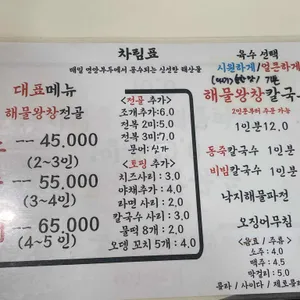 차림표
매일 연안부두에서 공수되는 신선한 해산물
대표메뉴
해물왕창전골
-- 45.000
(2~3인)
-- 55.000
(3~4인)
-- 65.000
(4~5 인)
<전골 추가>
조개추가:6.0
전복 2미:5.0
전복 3미:7.0
문어:싯가
<토핑 추가>
치즈사리 : 3.0
야채추가 : 4.0
라면 사리 : 2.0
칼국수 사리 : 3.0
물떡 8개 : 2.0
오뎅 꼬치 5개 : 4.0
육수 선택
시원하게/얼큰하게
해물왕창칼국수
2인분부터 주문 가능
1인분12.0
동죽칼국수 1인분
비빔칼국수 1인분
낙지해물파전
오징어무침
<음료 / 주류>
소주 : 4.0
맥주 : 4.5
막걸리 : 5.0
콜라 / 사이다 / 제로콜라